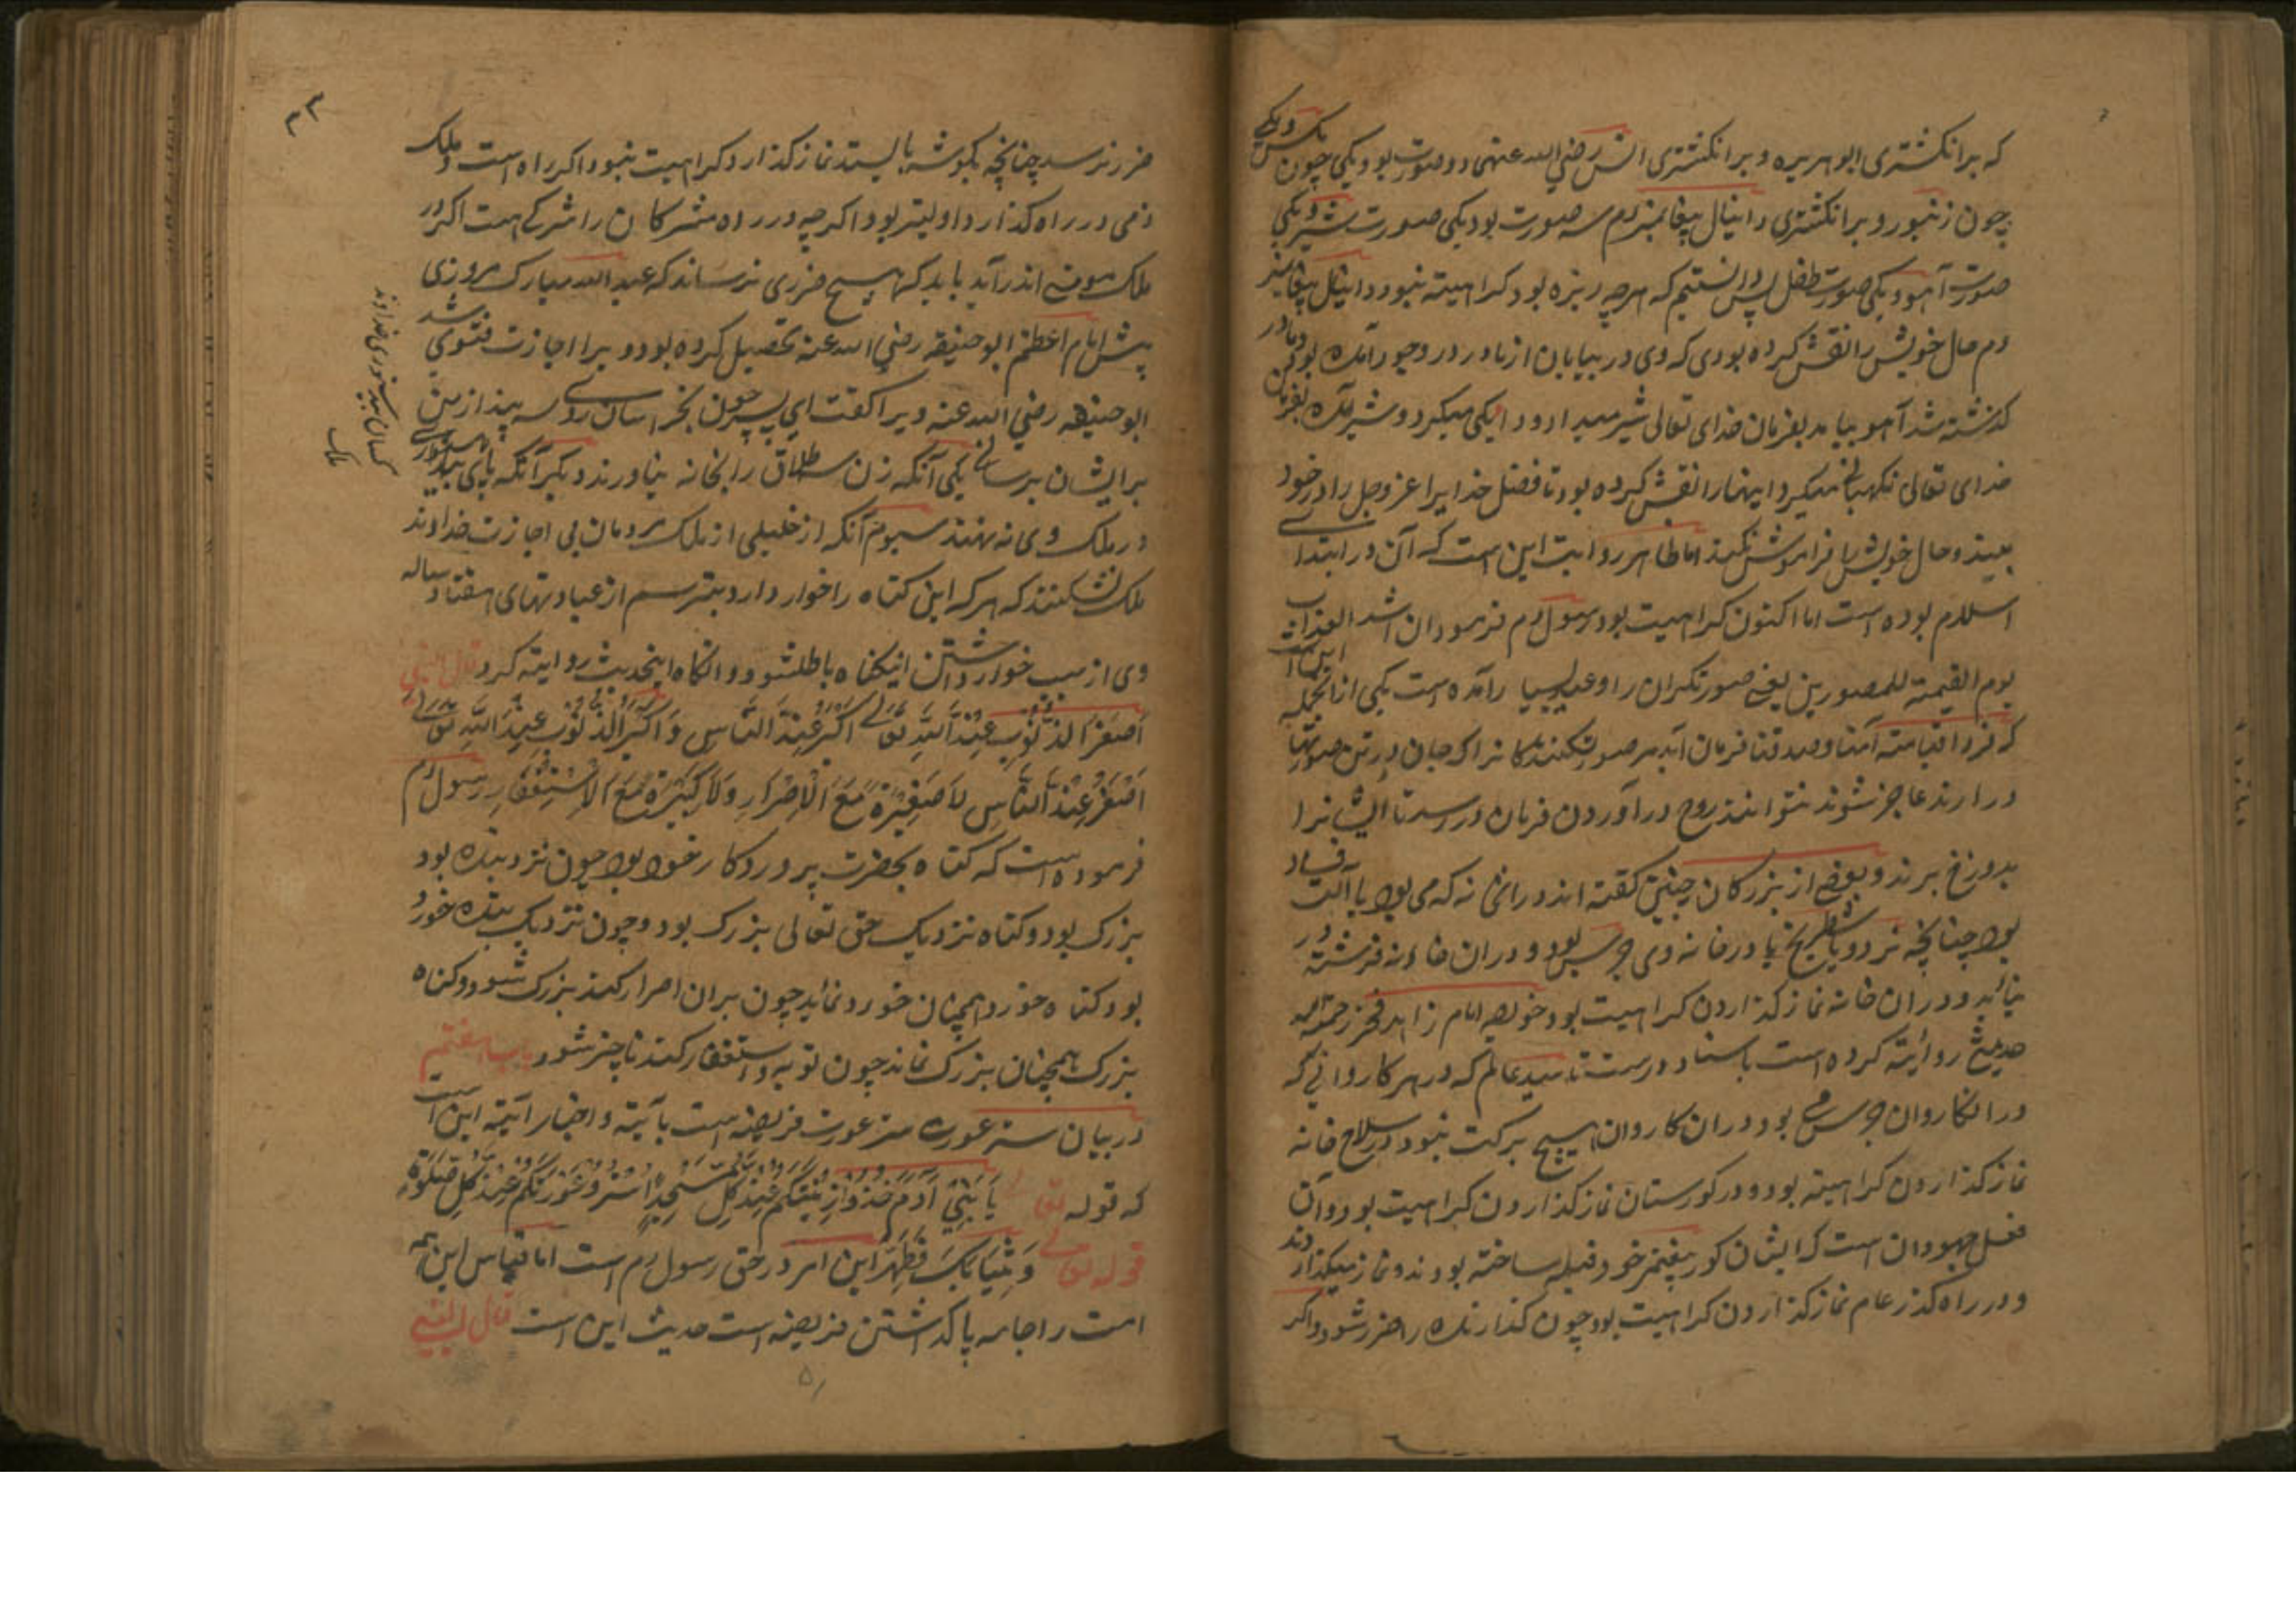 که بر انکشتری ابو هریره و بر انکشتری انس رضی الله عنهی دو صورت بود یکی چون مکس و یکی
چون زنبور و بر انکشتری دانیال پیغامبر م سه صورت بود یکی صورت شیر و یکی
صورت آهو و یکی صورت طفل پس دانستیم که هرچه ریزه بود کراهیته نبود و دانیال پیغامبر
م حال خویش را نقش کرده بودی که وی در بیابان از مادر در وجود آمده بود و مادر
کذشته شد آهو بیامد بفرمان خدای تعالی شیر میداد و یکی میکرد و شیر آمده بفرمان
خدای تعالی نکهبانی میکرد اینهمارا نقش کرده بود تا فضل خدایرا عز وجل را در خود
ببیند و حال خویش را فراموش نکند اما ظاهر روایت این است که آن در ابتدای
اسلام بوده است اما اکنون کراهیت بود رسول م فرمود ان اشد العذاب
یوم القیمة للمصورین یعنی صورتکران را وعید بسیار آمده است یکی از انجمله این است
که فردا قیامته آمنا و صدقنا فرمان آید مر صورت کنندکانرا که جان در تن صورتها
در ارند عاجز شوند نتوانند روح در آوردن فرمان در رسد تا ایشانرا
بدوزخ برند و بعضی از بزرکان چنین کفته اند در انخانه که می بود یا آلت فساد
بود چنانچه نرد و یا شطرنج یا در خانه وی جرس بود و در ان خانه فرشته در
نیاید و در ان خانه نماز کذاردن کراهیت بود خواجه امام زاهد فخر رحمة الله
حدیث روایته کرده است باسناد درست تا سید عالم که در هر کاروانی که
در انکاروان جرس بود در ان کاروان هیچ برکت نبود در سلاح خانه
نماز کذاردن کراهیته بود و در کورستان نماز کذاردن کراهیت بود و آن
فعل جهودان است که ایشان کور پیغمبر خود قبله ساخته بودند و نماز میکذاردند
و در راه کذر عام نماز کذاردن کراهیت بود چون کذارنده را ضرر شود و اکر
ضرر نرسد چنانچه بکوشه بایستد نماز کذارد کراهیت نبود اکر راه است و ملک
ذمی در راه کذارد اولیتر بود اکرچه در راه مشرکان را شرکے هست اکر در
ملک مومنے اندر آید باید که هیچ ضرری نرساند که عبد الله مبارک مروزی
پیش امام اعظم ابو حنیفه رضی الله عنه تحصیل کرده بود و ویرا اجازت فتوی شد
ابو حنیفه رضی الله عنه ویرا کفت ای پسر چون بخراسان روی سه پند از من
برایشان برسانے یکی آنکه زن سه طلاق را بخانه نیاورند دیکر آنکه پای بیدستوری
در ملک وی نه نهند سیوم آنکه از خلیلی از ملک مردمان بی اجازت خداوند
ملک نشکنند که هر که این کناه را خوار دارد بترسم از عبادتهای هفتاد ساله
وی از سبب خوار داشتن اینکناه باطل شود و انکاه اینحدیث روایته کرد قال النبی
اَصْغَرُ الذُّنُوْبِ عِنْدَ اللّٰهِ تَعَالٰی اَکْبَرُ عِنْدَ النَّاسِ وَ اَکْبَرُ الذُّنُوْبِ عِنْدَ اللّٰهِ تَعَالٰی
اَصْغَرُ عِنْدَ النَّاسِ لَا صَغِیْرَةَ مَعَ الْاِصْرَارِ وَلَا کَبِیْرَةَ مَعَ الْاِسْتِغْفَارِ رسول م
فرموده است که کناه بحضرت پروردکار بود چون نزد بنده بود
بزرک بود و کناه نزدیک حق تعالی بزرک بود و چون نزدیک بنده خورد
بود کناه خورد همچنان خورد نماید چون بران اصرار کند بزرک شود و کناه
بزرک همچنان بزرک نماند چون توبه و استغفار کند ناچیز شود باب هفتم
در بیان ستر عورت ستر عورت فریضه است بآیته و اخبار آیته این است
که قوله تعالی یَا بَنِیْ اٰدَمَ خُذُوْا زِیْنَتَکُمْ عِنْدَ کُلِّ مَسْجِدٍ اُسْتُرُوْ عَوْرَتَکُمْ عِنْدَ کُلِّ صَلٰوةٍ
قوله تعالی وَ ثِیَابَکَ فَطَهِّرْ این امر در حق رسول م است اما قیاس این همه
امت را جامه پاک داشتن فریضه است حدیث این است قال النبی